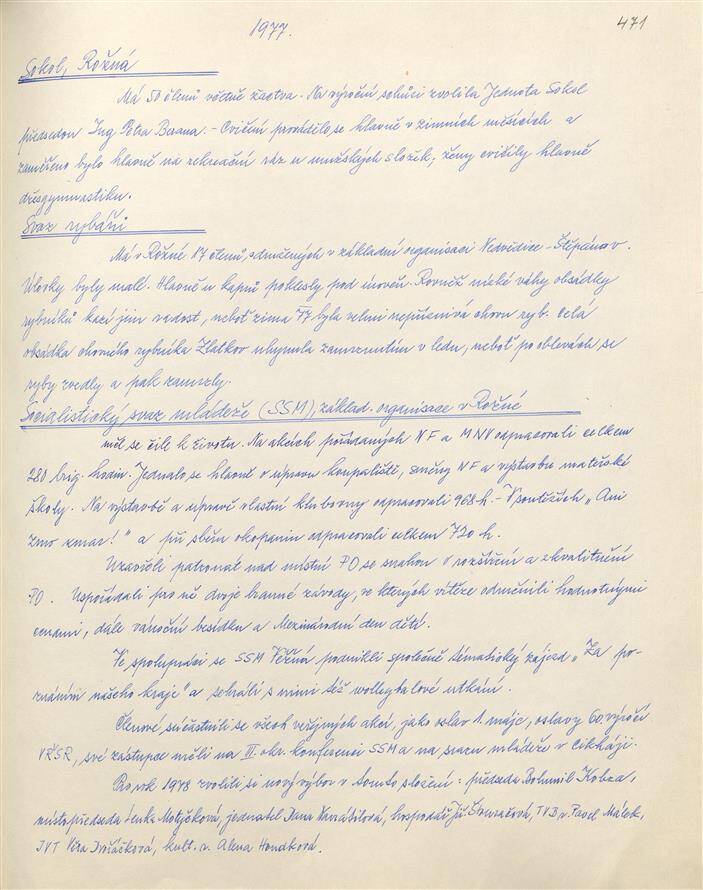 1977.
471
Sokol, Rožná
Má 50 členů včetně žactva. Na výroční schůzi zvolila Jednota Sokol
předsedou Ing. Petra Berana. - Cvičení provádělo se hlavně v zimních měsících a
zaměřeno bylo hlavně na rekreační ráz u mužských složek, ženy cvičily hlavně
džesgymnastiku.
Svaz rybářů
Má v Rožné 17 členů, sdružených v základní organisaci Nedvědice - Štěpánov.
Úlovky byly malé. Hlavně u kaprů poklesly pod úroveň. Rovněž nízké váhy obsádky
rybníků kazí jim radost, neboť zima 77 byla velmi nepříznivá chovu ryb. Celá
obsádka chovného rybníka Zlatkov uhynula zamrznutím v ledu, neboť po oblevách se
ryby zvedly a pak zamrzly.
Socialistický svaz mládeže (SSM), základ. organisace v Rožné
měl se čile k životu. Na akcích pořádaných NF a MNV odpracovali celkem
280 brig. hodin. Jednalo se hlavně o úpravu koupaliště, směny NF a výstavbu mateřské
školy. Na výstavbě a úpravě vlastní klubovny odpracovali 968 h. - V soutěžích „Ani
zrno nazmar!" a při sběru okopanin odpracovali celkem 720 h.
Uzavřeli patronát nad místní PO se snahou o rozšíření a zkvalitnění
PO. Uspořádali pro ně dvoje branné závody, ve kterých vítěze odměnili hodnotnými
cenami, dále vánoční besídku a Mezinárodní den dětí.
Ve spolupráci se SSM Věžná podnikli společně tématický zájezd „Za po-
znáním našeho kraje" a sehráli s nimi též wolleybalové utkání.
Členové súčastnili se všech veřejných akcí, jako oslav 1. máje, oslavy 60. výročí
VŘSR, své zástupce měli na III. okr. konferenci SSM a na srazu mládeže v Cikháji.
Pro rok 1978 zvolili si nový výbor v tomto složení: předseda Bohumil Kobza,
místopředseda Lenka Motyčková, jednatel Dana Navrátilová, hospodář Jiř. TVB v. Pavel Málek,
JVT Věra Dvořáčková, kult. r. Alena Houdková.